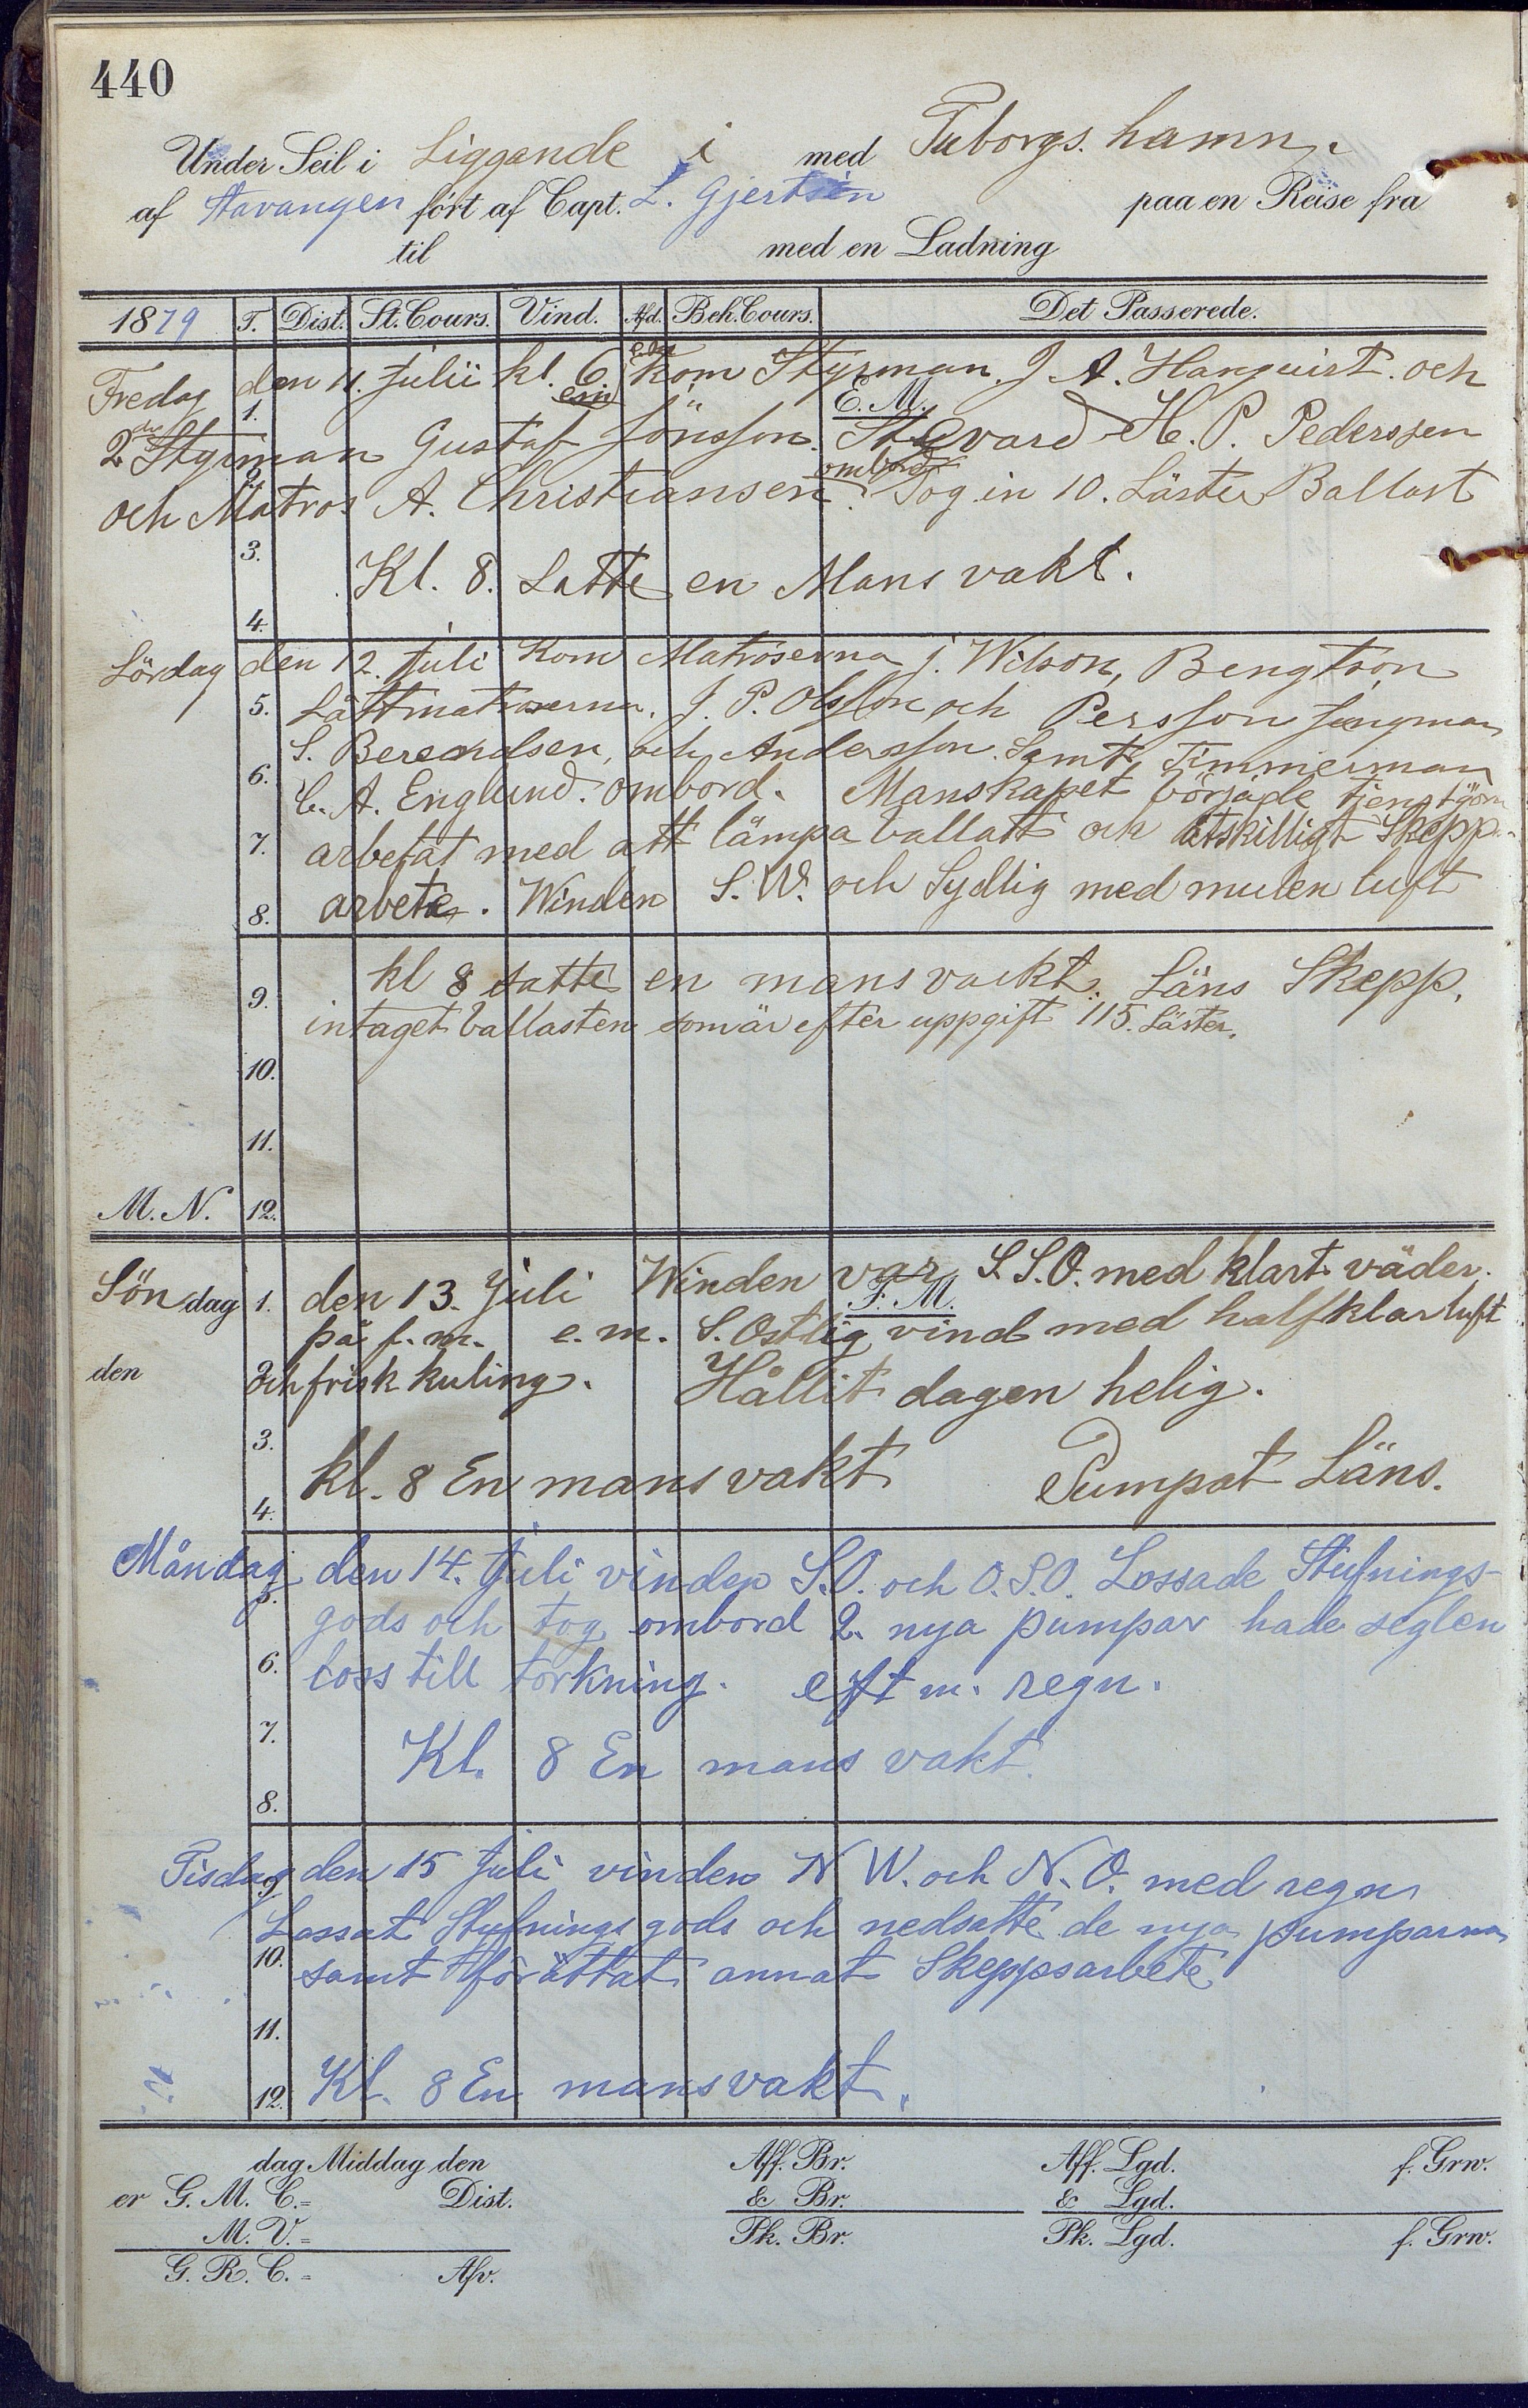 440
Under Seil i Liggande i med Tuborgs. hamn.
af Stavanger ført af Capt. L. Gjertsen paa en Reise fra
til med en Ladning
1879 T. Dist. St. Cours. Vind. Afd. Beh. Cours. Det Passerede.
Fredag den 11. Julii kl. 6. em kom Styrman. J A. Hanquist. och
1. E. M.
2 dre Styrman Gustaf Jönsson. Stevard H. P. Pederssen
och Matros A. Christiansen ombord. Tog in 10. Läster Ballast
3.
Kl. 8. Satte en Mans vakt.
4.
Lördag den 12. Juli Kom Matroserna J. Wilson, Bengtson
5. Lättmatroserna. J. P. Olsson och Persson Jungman
S. Berendsen, och Andersson. Samt Timmerman
6. C. A. Englund. ombord. Manskapet började
7. arbetat med att lämpa ballast och åtskilligt Skepps-
8. arbete. Winden S. W. och Sydlig med mulen luft
kl 8 satte en mans vackt. Läns Skepp,
9.
intaget ballasten som är efter uppgift 115. Läster.
10.
11.
M. N. 12.
Söndag 1. den 13. Juli Winden var S.S.O. med klart väder.
F. M.
på f. m. e. m. S. Ostlig vind med halfklar luft
den 2. och frisk kuling. Hållit dagen helig.
3.
kl. 8 En mans vakt Pumpat Läns.
4.
Måndag den 14. Juli vinden S.O. och O.S.O. Lossade Stufnings-
5.
gods och tog ombord 2. nya pumpar hade seglen
6. loss till torkning. eft m. regn.
7.
Kl. 8 En mans vakt.
8.
Tisdag den 15 Juli vinden N W. och N. O. med regn
9.
Lossat Stufnings gods och nedsatte de nya pumparna
10. samt förättat annat Skeppsarbete
11.
12. Kl. 8 En mans vakt.
dag Middag den Aff. Br. Aff. Lgd. f. Grw.
er G. M. C.= Dist. & Br. & Lgd.
M. V.= Pk. Br. Pk. Lgd. f. Grw.
G. R. C.= Afv.